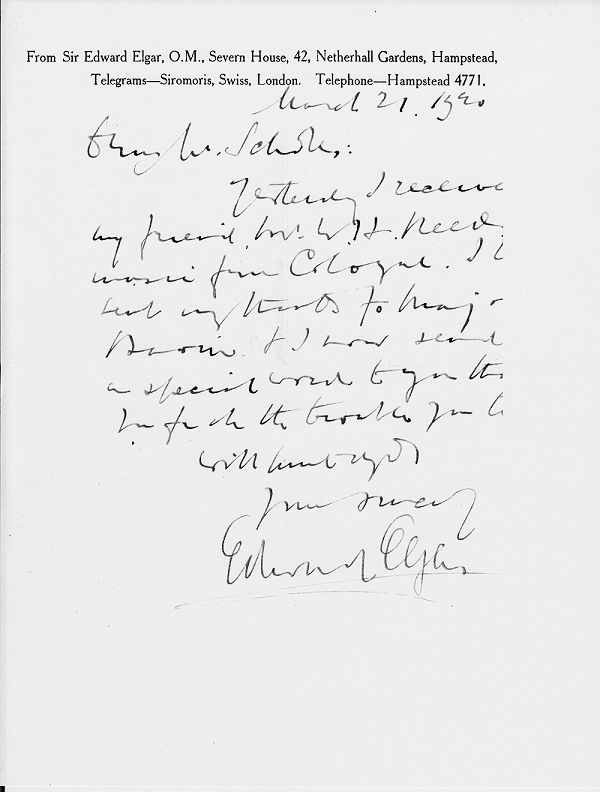 From Sir Edward Elgar, O.M., Severn House, 42, Netherhall Gardens, Hampstead,
Telegrams—Siromoris, Swiss, London. Telephone—Hampstead 4771.
March 21. 1920
Mr. Scholes:
Yesterday I receive
my friend, Mr. W.H. Reed,
music from Cologne. I
sent my thanks to Major
& I now send
a special word to you
for all the trouble you
with kind regards
Yours sincerely
Edward Elgar